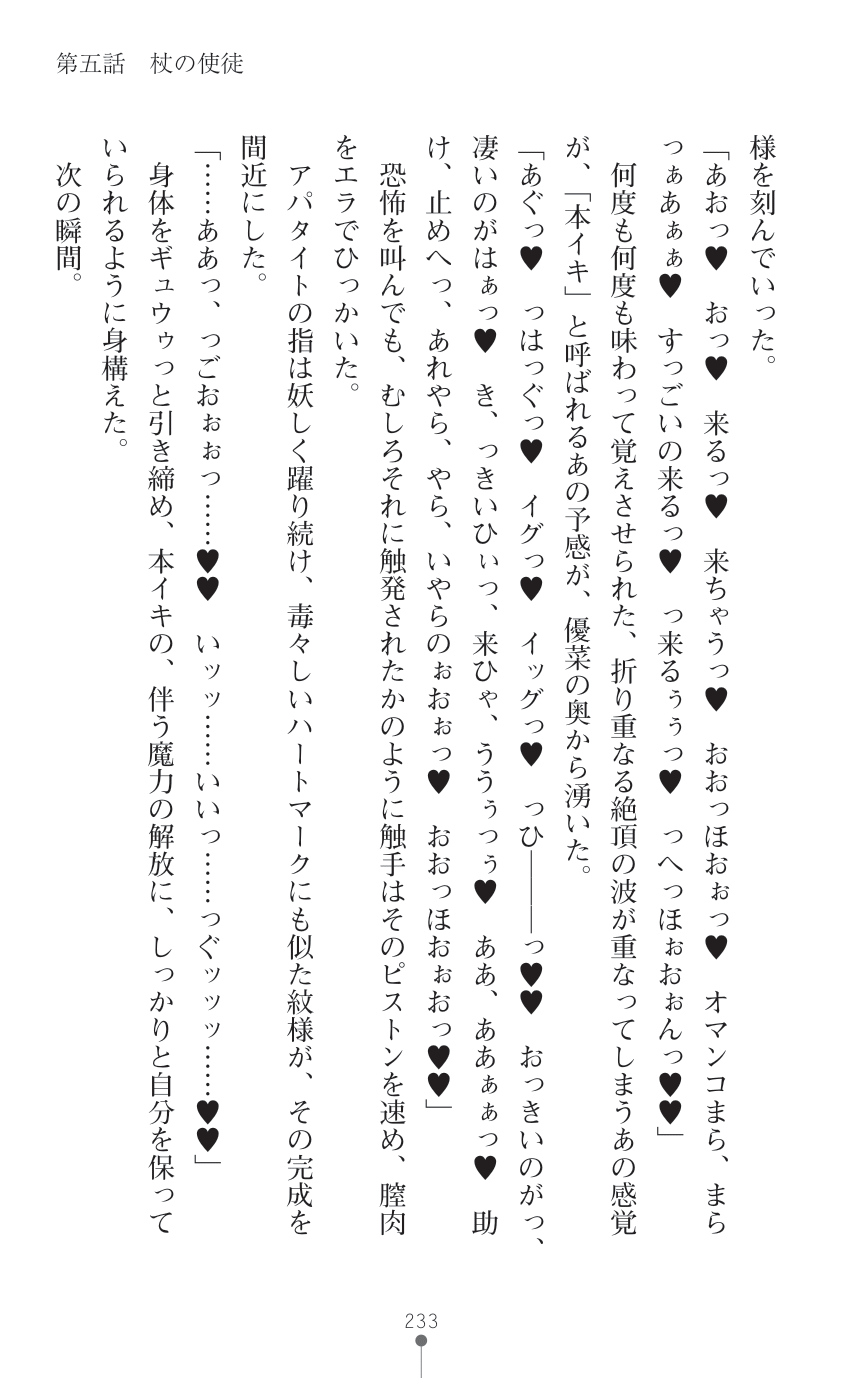 第五話　杖の使徒
様を刻んでいった。
「あおっ♥　おっ♥　来るっ♥　来ちゃうっ♥　おおっほおぉっ♥　オマンコまら、まら
っぁあぁぁ♥　すっごいの来るっ♥　っ来るぅぅっ♥　っへっほぉおぉんっ♥♥」
　何度も何度も味わって覚えさせられた、折り重なる絶頂の波が重なってしまうあの感覚
が、「本イキ」と呼ばれるあの予感が、優菜の奥から湧いた。
「あぐっ♥　っはっぐっ♥　イグっ♥　イッグっ♥　っひ――っ♥♥　おっきいのがっ、
凄いのがはぁっ♥　き、っきいひぃっ、来ひゃ、ううぅつぅ♥　ああ、ああぁぁっ♥　助
け、止めへっ、あれやら、やら、いやらのぉおぉっ♥　おおっほおぉおっ♥♥」
　恐怖を叫んでも、むしろそれに触発されたかのように触手はそのピストンを速め、膣肉
をエラでひっかいた。
　アパタイトの指は妖しく躍り続け、毒々しいハートマークにも似た紋様が、その完成を
間近にした。
「……ああっ、っごおぉぉっ……♥♥　いッッ……いいっ……っぐッッッ……♥♥」
　身体をギュウゥっと引き締め、本イキの、伴う魔力の解放に、しっかりと自分を保って
いられるように身構えた。
　次の瞬間。
233